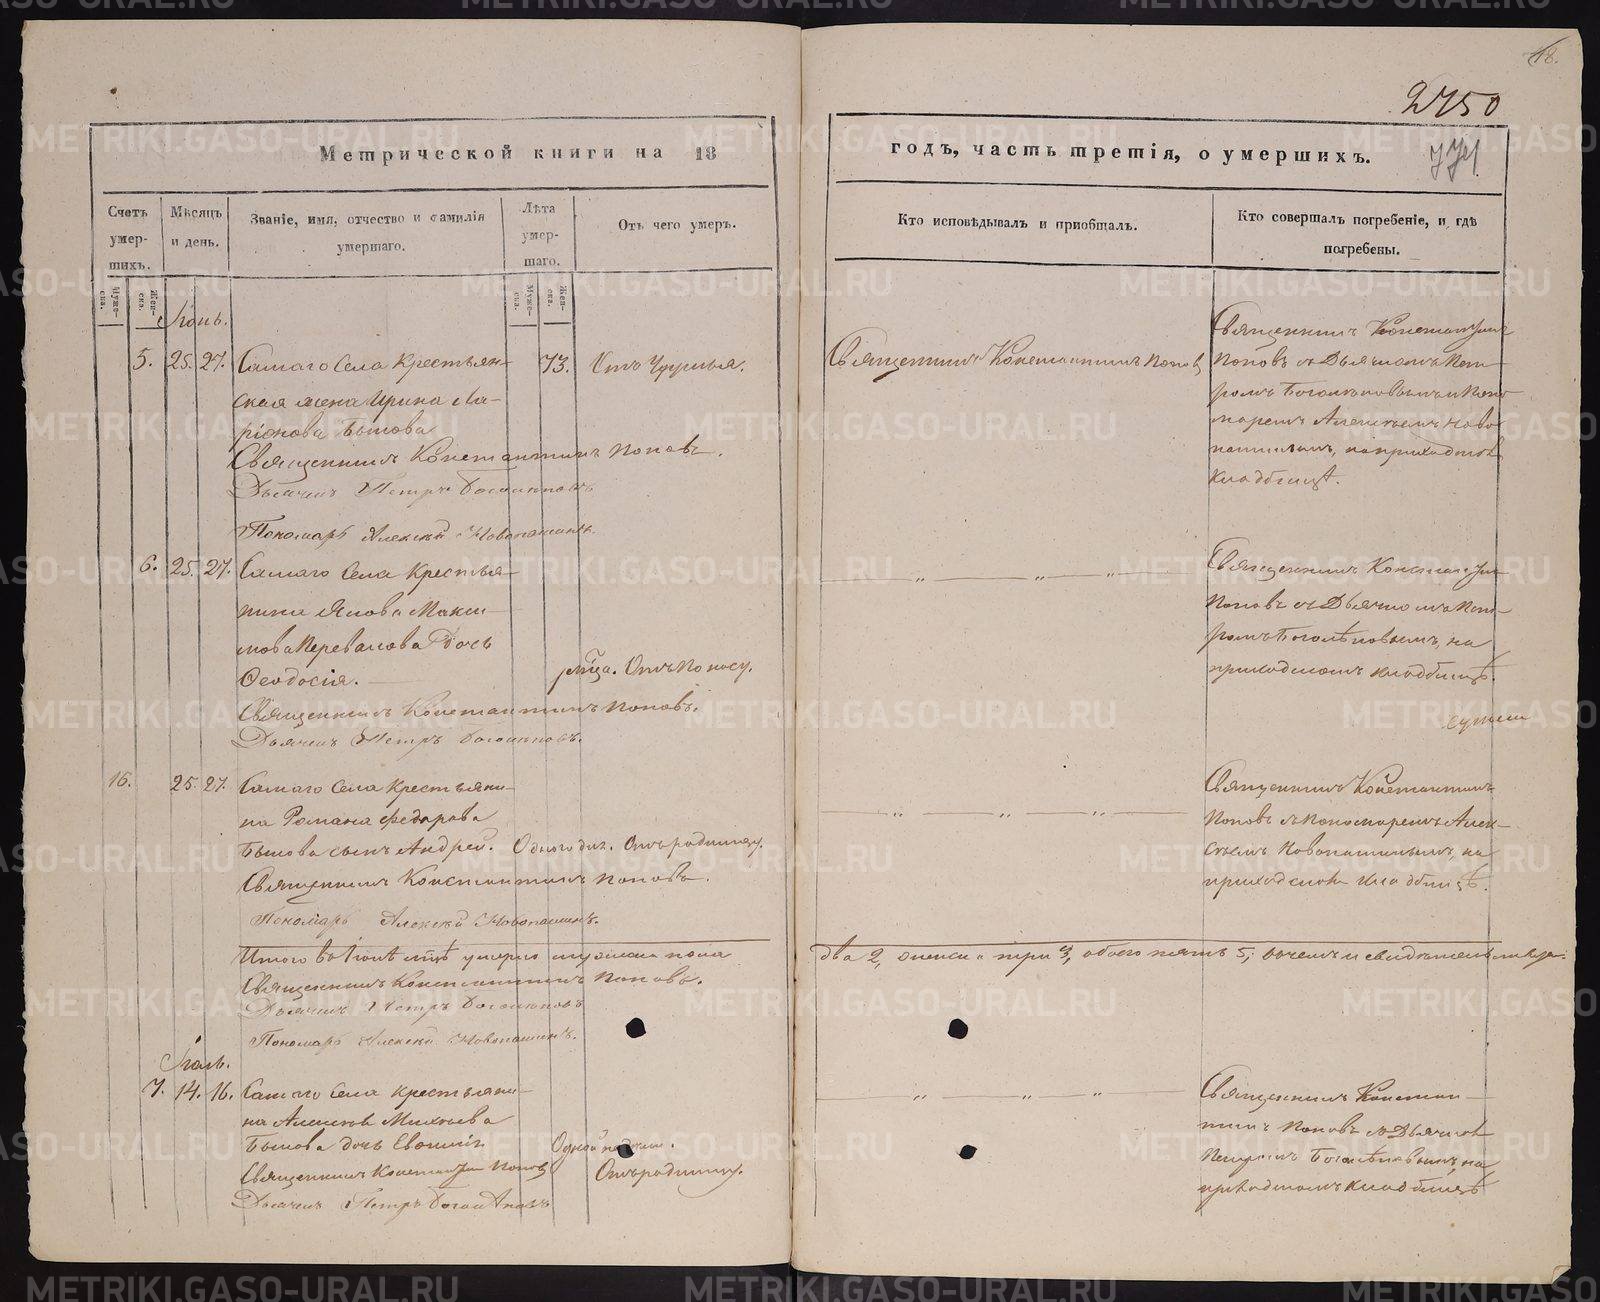 18.
2750
Метрической книги на 18
годъ, часть третія, о умершихъ.
771
Счетъ умер-шихъ.
Мѣсяцъ и день.
Званіе, имя, отчество и фамилія умершаго.
Лѣта умер-шаго.
Отъ чего умеръ.
Кто исповѣдывалъ и приобщалъ.
Кто совершалъ погребеніе, и гдѣ погребены.
Муже-ска.
Жен-ска.
Муже-ска.
Жен-ска.
Іюнь.
5. 25. 27. Самаго Села Крестьян-
73.
ская жена Ирина Ла-
ріонова Бытова
Священникъ Константинъ Поповъ.
Дьячекъ Петръ Боголѣповъ
Пономарь Алексѣй Новопашинъ.
Священникъ Константинъ Поповъ
Священникъ Константинъ
Поповъ съ Дьячкомъ Пет-
ромъ Боголѣповымъ и Поно-
маремъ Алексѣемъ Ново-
пашинымъ, на приходскомъ
кладбищѣ.
6. 25. 27. Самаго Села Крестья-
нина Якова Макси-
мова Перевалова Дочь
Ѳеодосія.
мѣсяца. Отъ поносу.
Священникъ Константинъ Поповъ.
Дьячекъ Петръ Боголѣповъ.
Священникъ Константинъ
Поповъ съ Дьячкомъ Пет-
ромъ Боголѣповымъ, на
приходскомъ кладбищѣ.
16. 25. 27. Самаго Села Крестьяни-
на Романа Федорова
Бытова сынъ Андрей. Одного дня. Отъ родимцу.
Священникъ Константинъ Поповъ.
Пономарь Алексѣй Новопашинъ.
Священникъ Константинъ
Поповъ съ Пономаремъ Алек-
сѣемъ Новопашинымъ, на
приходскомъ кладбищѣ.
Итого въ Іюнѣ мцѣ умерло мужеска пола
два 2, женска три 3, обоего пять 5; въ чемъ и свидѣтельствуемъ.
Священникъ Константинъ Поповъ.
Дьячекъ Петръ Боголѣповъ
Пономарь Алексѣй Новопашинъ.
Іюль.
7. 14. 16. Самаго Села Крестьяни-
на Алексѣя Михѣева
Бытова дочь
Одной недѣли.
Отъ родимцу.
Священникъ Константинъ Поповъ
Дьячекъ Петръ Боголѣповъ
Священникъ Констан-
тинъ Поповъ съ Дьячкомъ
Петромъ Боголѣповымъ, на
приходскомъ кладбищѣ
METRIKI.GASO-URAL.RU